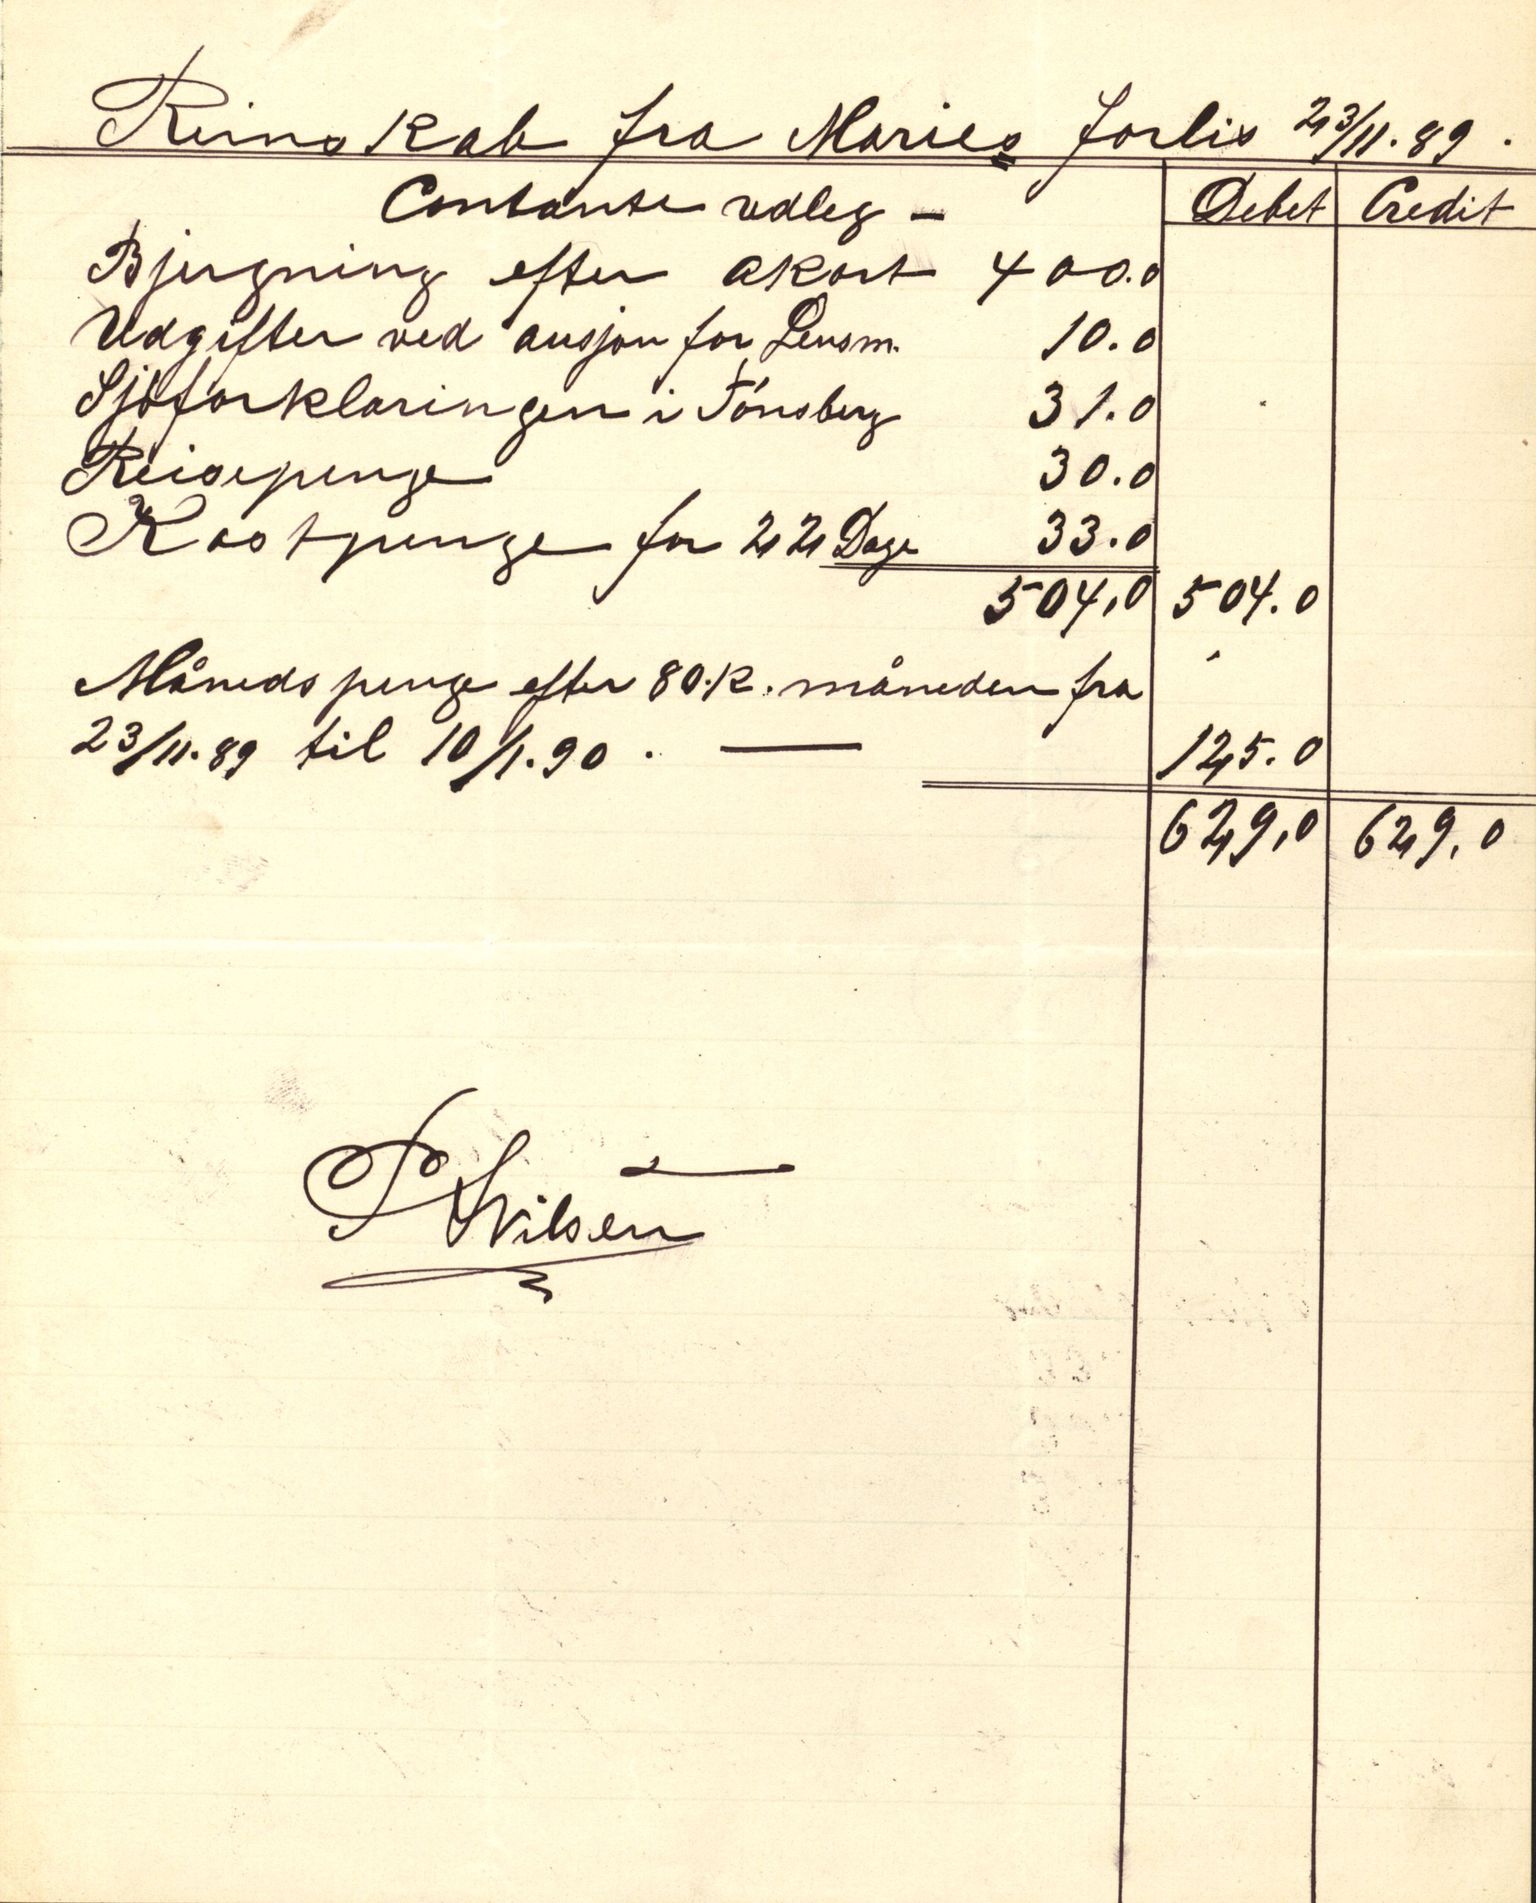 Reinskab fra Maries forlis 23/11.89.
Contante udleg — Debet Credit
Bjergning efter akort 400.0
Udgifter ved ausjon for Lensm. 10.0
Sjöforklaringen i Tönsberg 31.0
Reisepenge 30.0
Kostpenge for 22 Dage 33.0
504,0 504.0
Månedspenge efter 80.K. måneden fra
23/11.89 til 10/1.90. — 125.0
629,0 629,0
P Nilsen